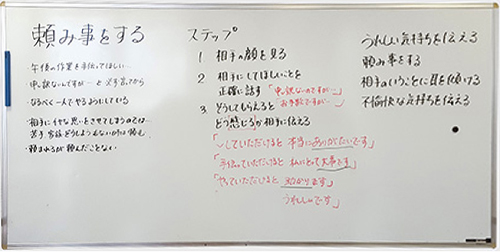 頼み事をする
午後の作業を手伝ってほしい…
申し訳ないんですが…と必ず言ってから
なるべく一人でやるようにしている
・相手にイヤな思いをさせてしまうのでは
苦手な
・頼まれるが頼んだことない
ステップ
1 相手の顔を見る
2 相手にしてほしいことを
正確に話す「申し訳ないのですが…」
「お手数ですが…」
3. どうしてもらえると
どう感じるか相手に伝える
「~していただけると 本当にありがたいです」
「手伝っていただけると 私にとって大事です」
「やっていただけると 助かります」
うれしいです」
うれしい気持ちを伝える
頼み事をする
相手のいうことに耳を傾ける
不愉快な気持ちを伝える